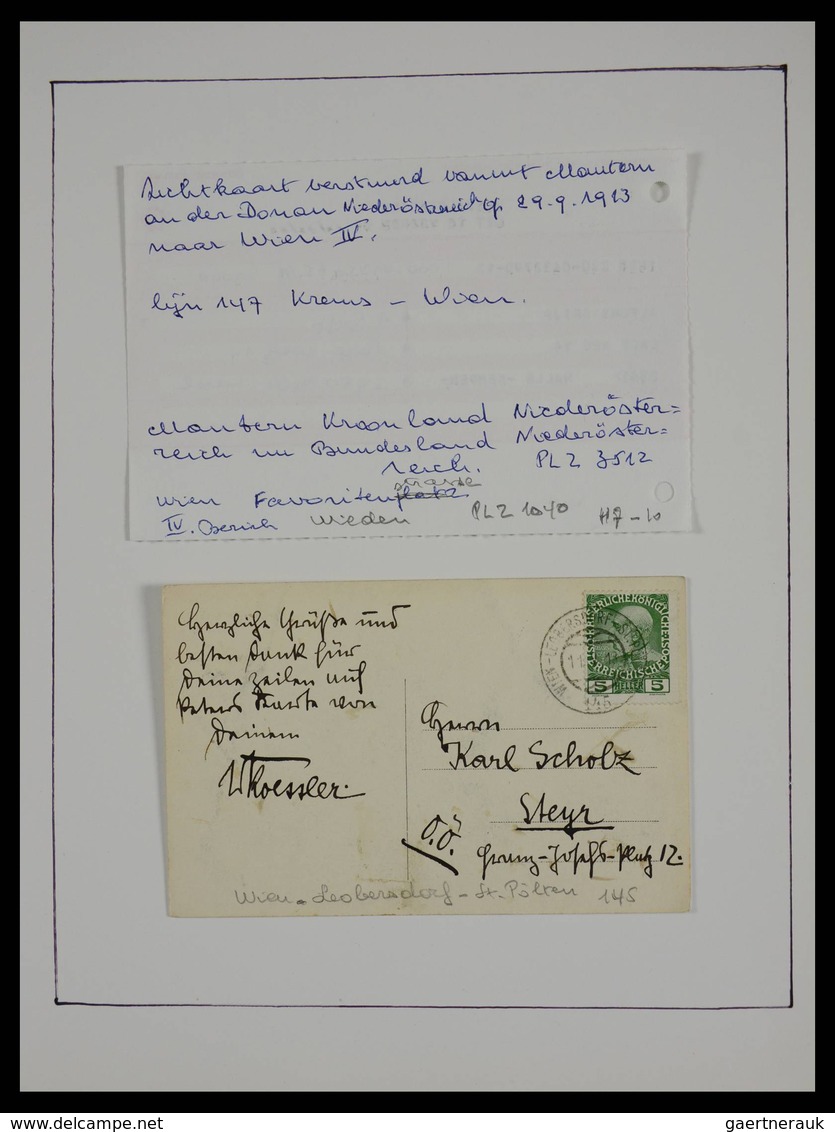 Zichtkaart verstuurd vanuit Mautern
an der Donau Niederösterreich op 29-9-1913
naar Wien IV.
lijn 147 Krems - Wien.
Mautern Kroonland Niederöster=
reich nu Bundesland Niederöster=
reich. PLZ 3512
strasse
Wien Favoritenplatz
IV. Bezirk Wieden PLZ 1040 H7-10
Herzliche Grüße und
besten Dank für
Deine Zeilen auf
Peters Karte von
Deinem
WKoessler.
WIEN-LEOBERSDORF-ST.
145
5 HELLER 5
Herrn
Karl Scholz
Steyr
O.Ö.
Franz-Josefs-Platz 12.
Wien - Leobersdorf - St. Pölten 145
gaertnerauk